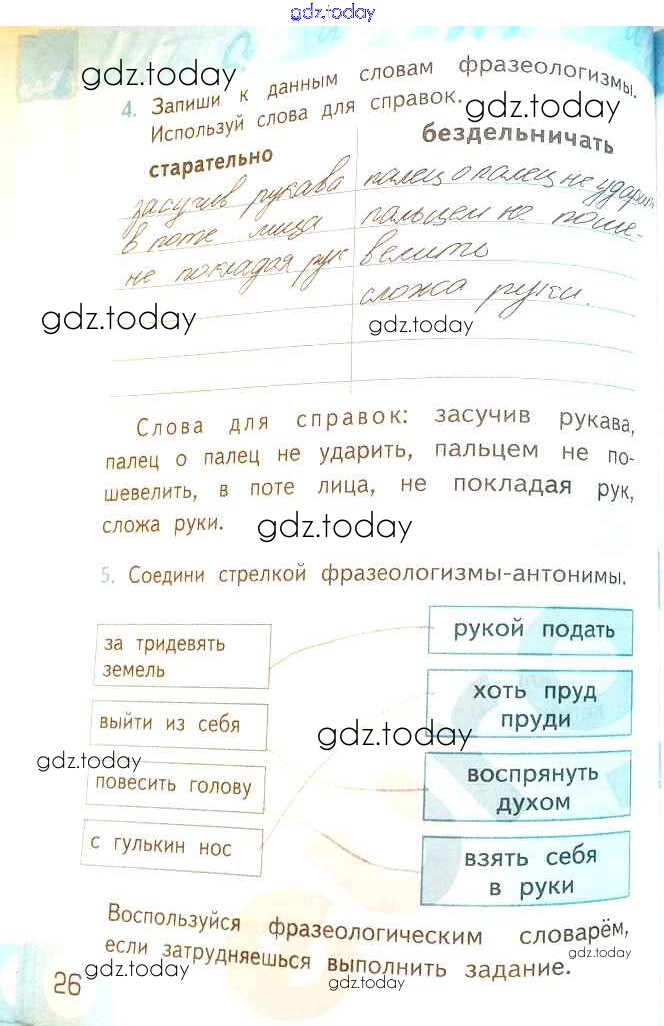 gdz.today
gdz.today
4. Запиши к данным словам фразеологизмы.
Используй слова для справок.
gdz.today
старательно
бездельничать
засучив рукава
палец о палец не ударить
в поте лица
пальцем не поше-
не покладая рук
велить
сложа руки.
gdz.today
gdz.today
Слова для справок: засучив рукава,
палец о палец не ударить, пальцем не по-
шевелить, в поте лица, не покладая рук,
сложа руки.
gdz.today
5. Соедини стрелкой фразеологизмы-антонимы.
за тридевять
земель
рукой подать
выйти из себя
хоть пруд
пруди
gdz.today
gdz.today
повесить голову
воспрянуть
духом
с гулькин нос
взять себя
в руки
Воспользуйся фразеологическим словарём,
если затрудняешься выполнить задание.
gdz.today
gdz.today
gdz.today
26